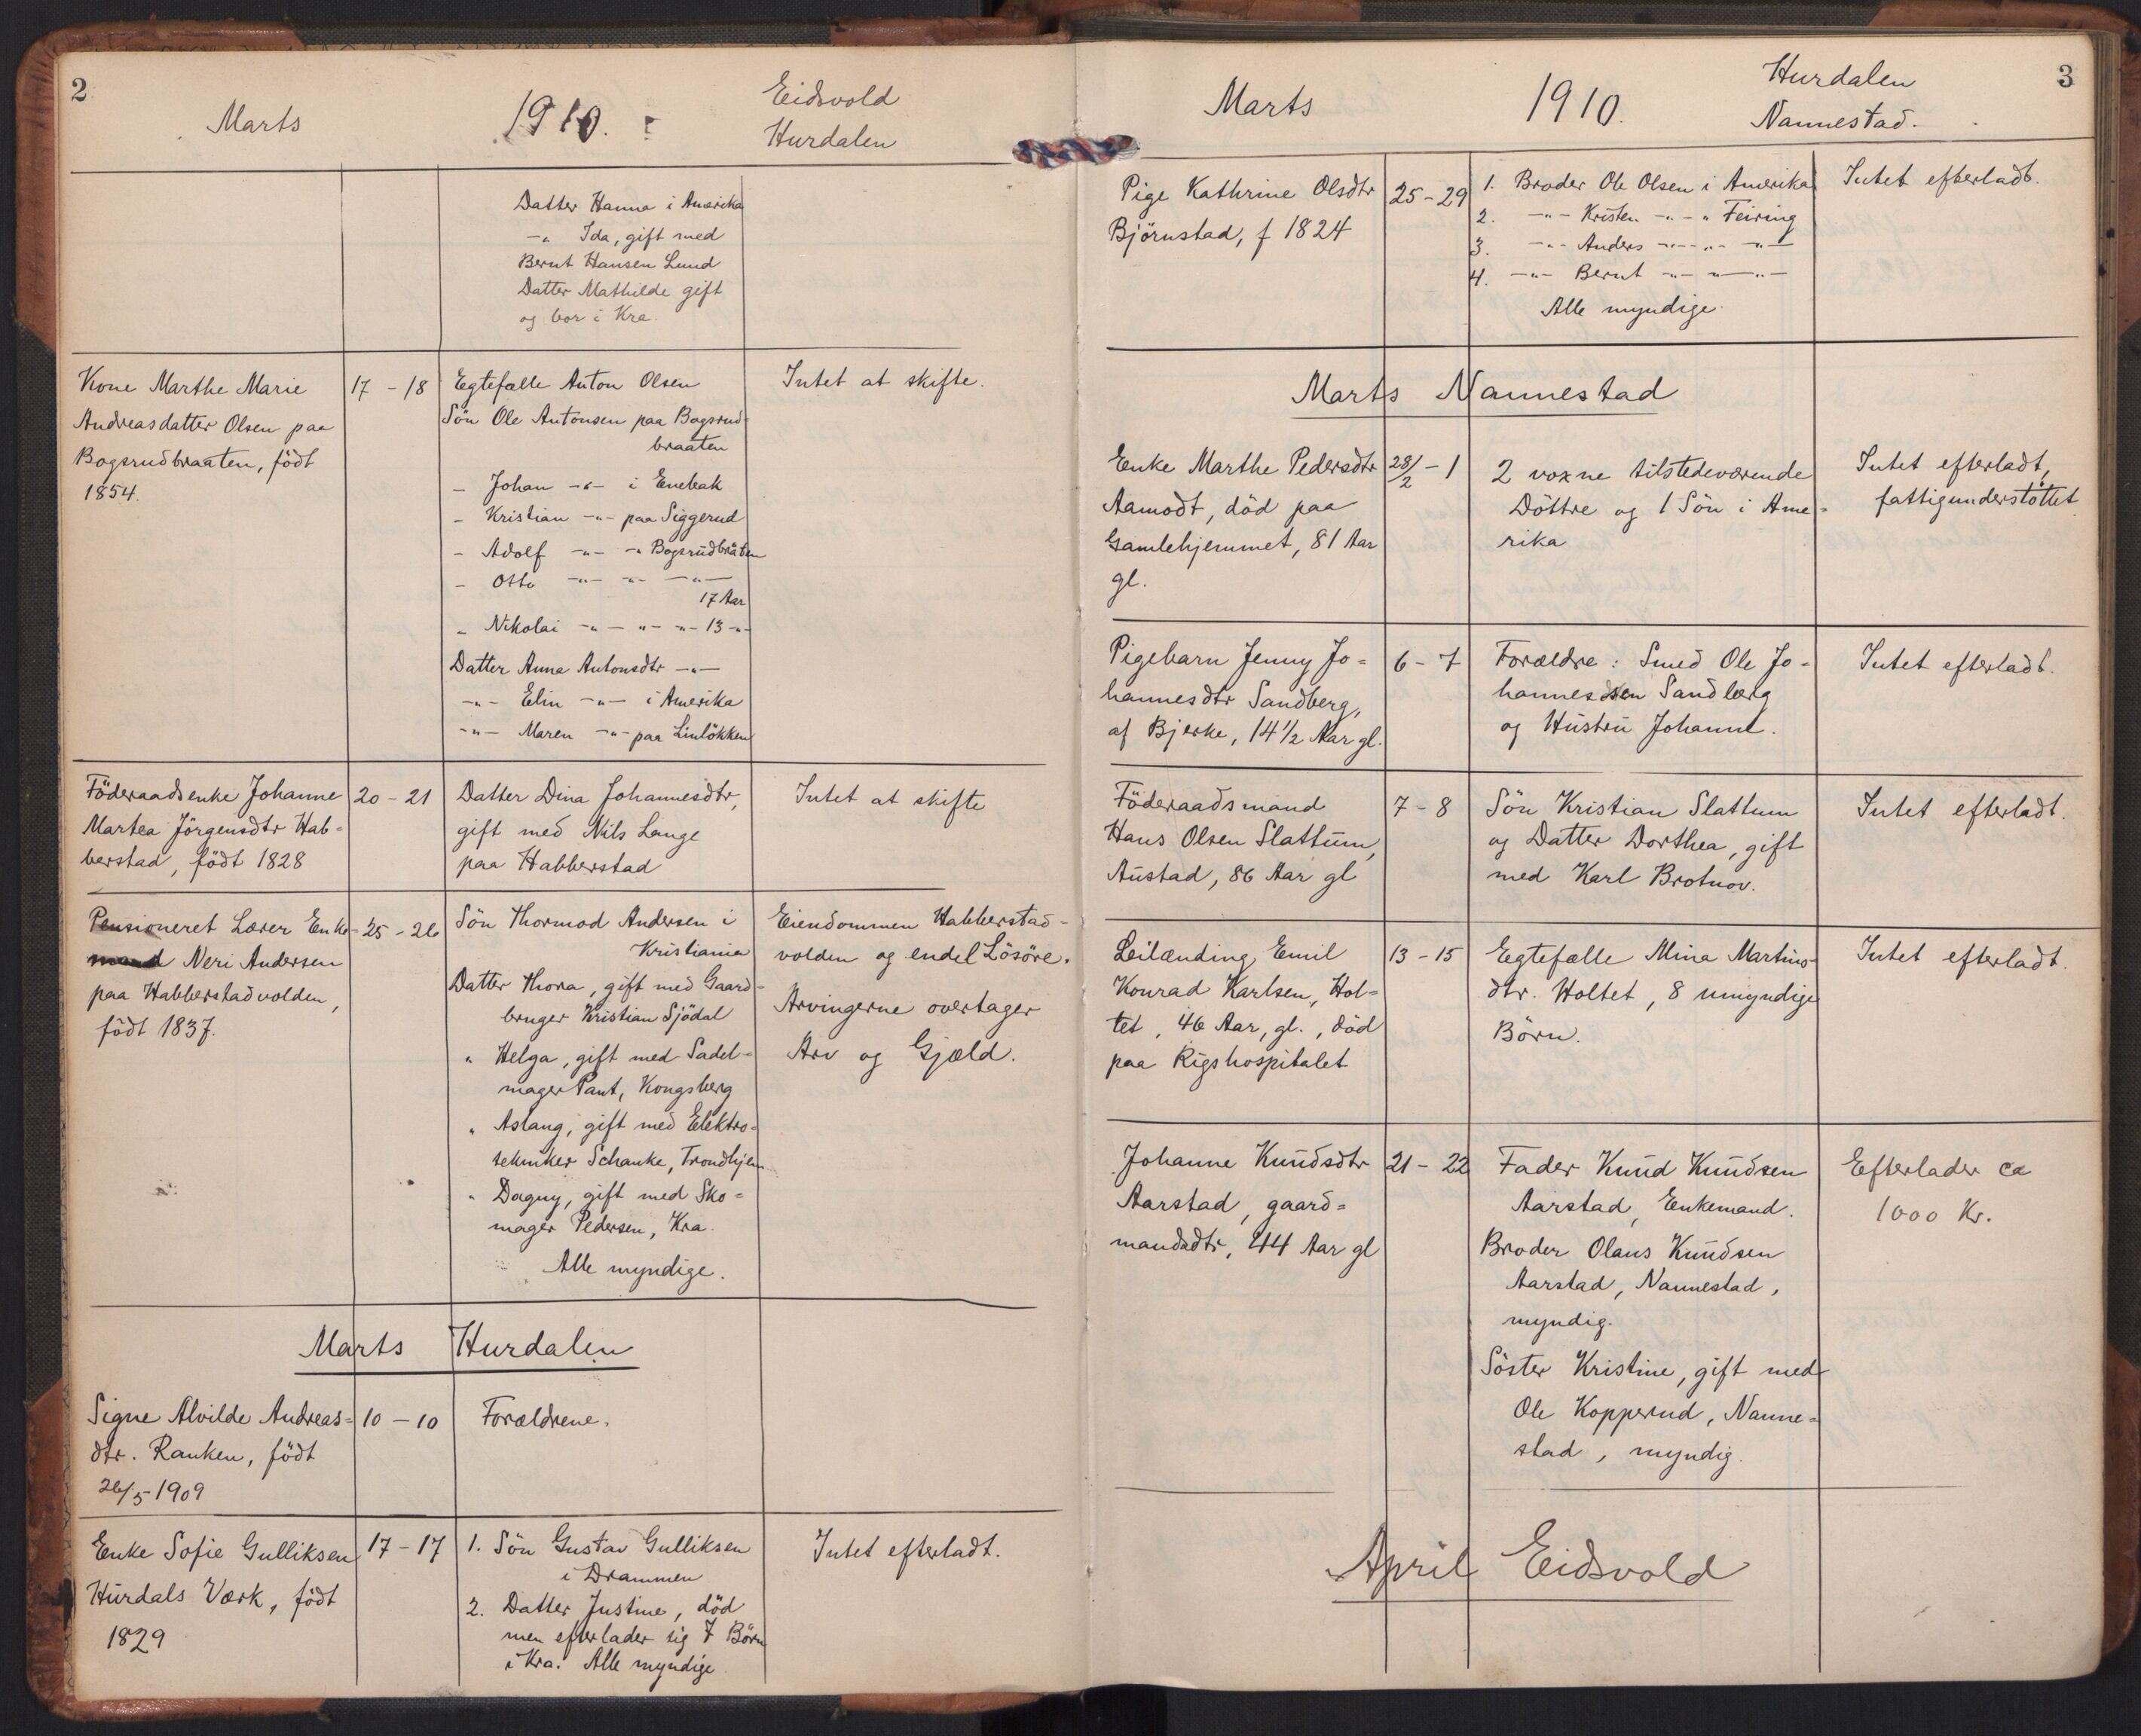 2
Marts 1910. Eidsvold
Hurdalen
Datter Hanna i Amerika
-"- Ida, gift med
Bernt Hansen Lund
Datter Mathilde gift
og bor i Kra.
Kone Marthe Marie
Andreasdatter Olsen paa
Bogsrudbraaten, født
1854.
17 - 18
Egtefælle Anton Olsen
Sön Ole Antonsen paa Bogsrud-
braaten
- Johan -"- i Enebak
- Kristian -"- paa Siggerud
- Adolf -"- -"- Bogsrudbråten
- Otto -"- -"- -"-
17 Aar
- Nikolai -"- -"- -"- 13 -"-
Datter Anna Antonsdtr -"-
-"- Elin -"- i Amerika
-"- Maren -"- paa Linløkken
Intet at skifte.
Föderaadsenke Johanne
Martea Jörgensdtr Hab=
berstad, födt 1828
20 - 21
Datter Dina Johannesdtr,
gift med Nils Lange
paa Habberstad
Intet at skifte
Pensioneret Lærer Enke-
mand Neri Andersen
paa Habberstadvolden,
födt 1837.
25 - 26
Sön Thormod Andersen i
Kristiania
Datter Thora, gift med Gaard=
bruger Kristian Sjödal
" Helga, gift med Sadel=
mager Pant, Kongsberg
" Aslaug, gift med Elektro=
tekniker Schanke, Trondhjem
" Dagny, gift med Sko=
mager Pedersen, Kra.
Alle myndige.
Eiendommen Habberstad-
volden og endel Lösöre.
Arvingerne overtager
Arv og Gjæld.
Marts Hurdalen
Signe Alvilde Andreas=
dtr. Ranken, födt
26/5 1909
10 - 10
Forældrene.
Enke Sofie Gulliksen
Hurdals Værk, födt
1829
17 - 17
1. Sön Gustav Gulliksen
i Drammen
2. Datter Justine, död
men efterlader sig 7 Börn
i Kra. Alle myndige
Intet efterladt.
3
Marts 1910. Hurdalen
Nannestad.
Pige Kathrine Olsdtr
Björnstad, f 1824
25 - 29
1. Broder Ole Olsen i Amerika
2. -"- Kristen -"- -"- Feiring
3. -"- Anders -"- -"- -"-
4. -"- Bernt -"- -"- -"-
Alle myndige.
Intet efterladt.
Marts Nannestad
Enke Marthe Pedersdtr
Aamodt, död paa
Gamlehjemmet, 81 Aar
gl.
28/2 - 1
2 voxne tilstedeværende
Döttre og 1 Sön i Ame=
rika
Intet efterladt,
fattigunderstöttet
Pigebarn Jenny Jo=
hannesdtr Sandberg,
af Bjerke, 14 1/2 Aar gl.
6 - 7
Forældre: Smed Ole Jo=
hannessen Sandberg
og Hustru Johanne.
Intet efterladt.
Föderaadsmand
Hans Olsen Slattum,
Austad, 86 Aar gl
7 - 8
Sön Kristian Slattum
og Datter Dorthea, gift
med Karl Brotnov.
Intet efterladt.
Leilænding Emil
Konrad Karlsen, Hol=
tet, 46 Aar, gl., död
paa Rigshospitalet
13 - 15
Egtefælle Mina Martins-
dtr. Holtet, 8 umyndige
Börn.
Intet efterladt.
Johanne Knudsdtr
Aarstad, gaard=
mandsdtr, 44 Aar gl
21 - 22
Fader Knud Knudsen
Aarstad, Enkemand.
Broder Olaus Knudsen
Aarstad, Nannestad,
myndig.
Söster Kristine, gift med
Ole Kopperud, Nanne=
stad, myndig.
Efterlader ca
1000 Kr.
April Eidsvold